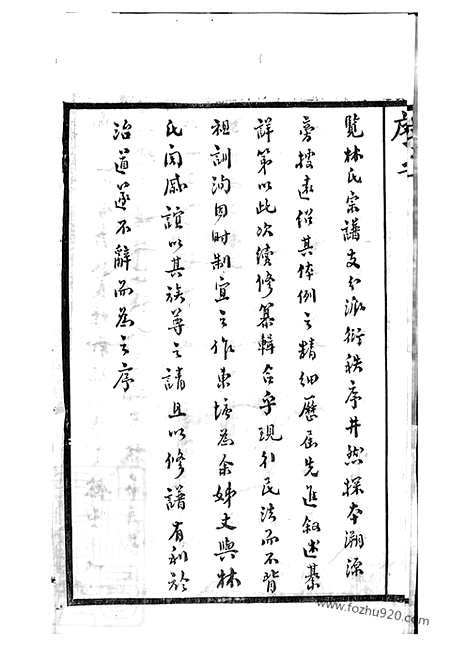 序二
覽林氏宗譜支分派衍秩序井然探本溯源
旁搜遠紹其体例之精細歷屆先進叙述綦
詳第以此次續修纂輯合乎現行民法而不背
祖訓洵因時制宜之作東墟為余姊丈與林
氏南戚誼以其族尊之請且以修譜有利於
治道遂不辭而為之序
www.fozhu920.com